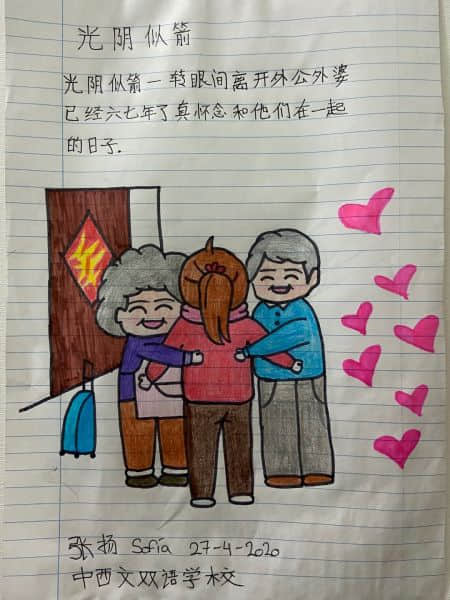 光阴似箭
光阴似箭一转眼间离开外公外婆
已经六七年了真怀念和他们在一起
的日子.
张扬 Sofía 27-4-2020
中西文双语学校